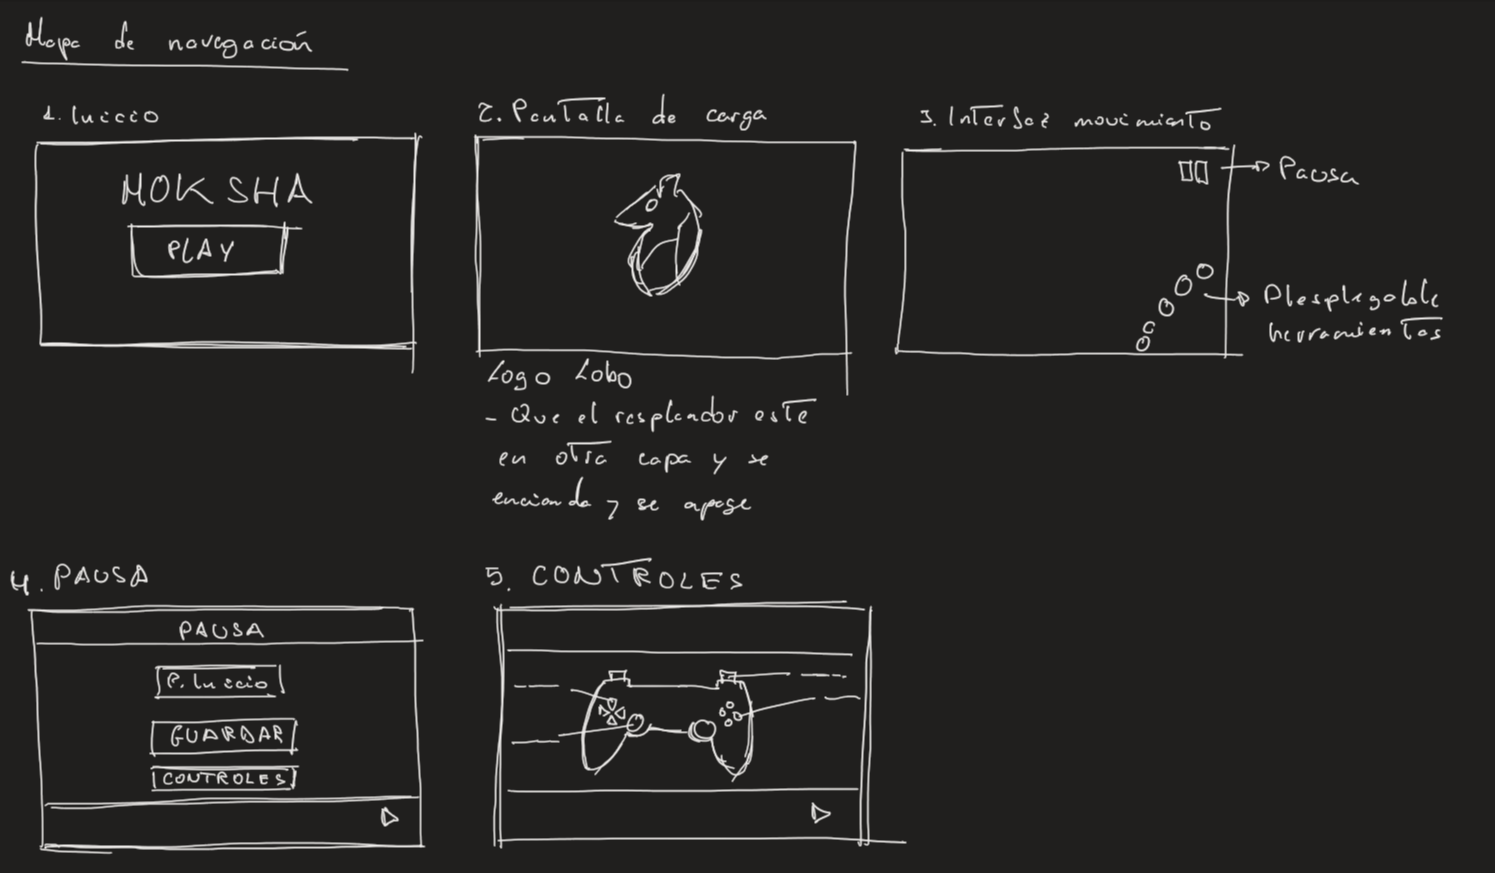 Mapa de navegación
1. Inicio
MOKSHA
PLAY
2. Pantalla de carga
Logo Lobo
- Que el resplandor este
en otra capa y se
encienda y se apage
3. Interfaz movimiento
Pausa
Desplegable
herramientas
4. PAUSA
PAUSA
P. Inicio
GUARDAR
CONTROLES
5. CONTROLES